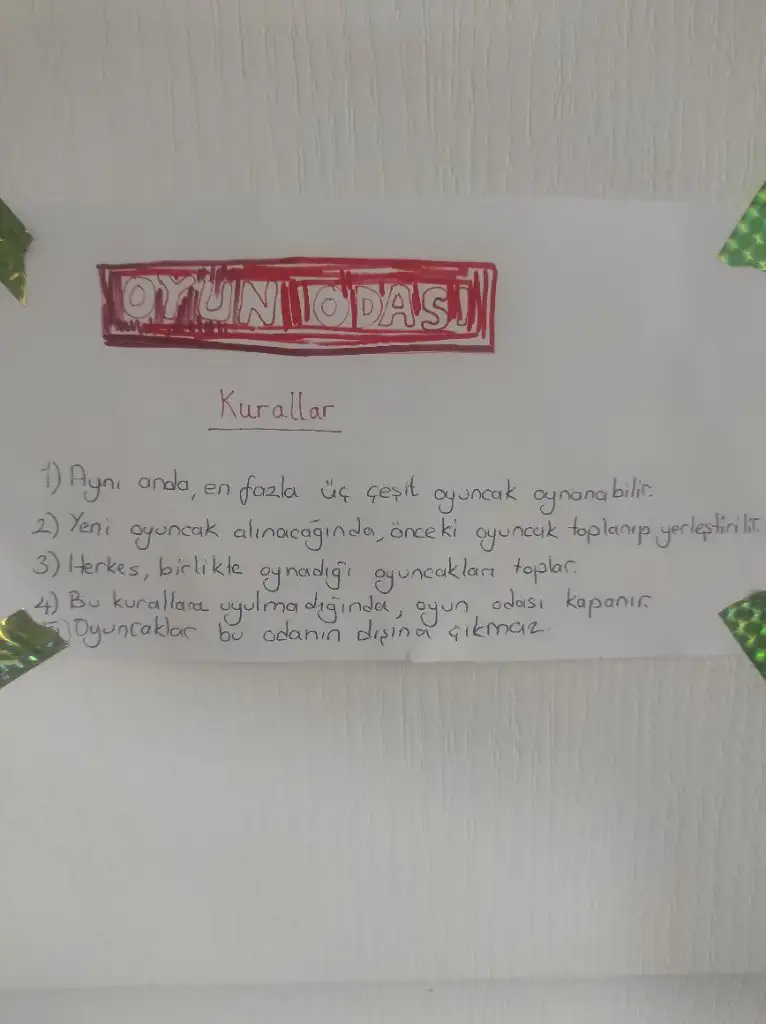 OYUN ODASI
Kurallar
1) Aynı anda, en fazla üç çeşit oyuncak oynanabilir.
2) Yeni oyuncak alınacağında, önceki oyuncak toplanıp yerleştirilir.
3) Herkes, birlikte oynadığı oyuncakları toplar.
4) Bu kurallara uyulmadığında, oyun odası kapanır.
5) Oyuncaklar bu odanın dışına çıkmaz.